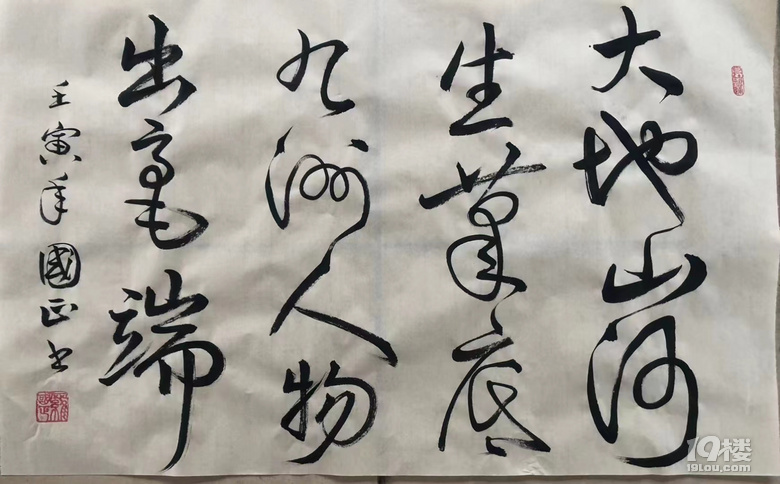 大地山河
生筆底
九洲人物
出毫端
壬寅年國正书
19楼
19lou.com